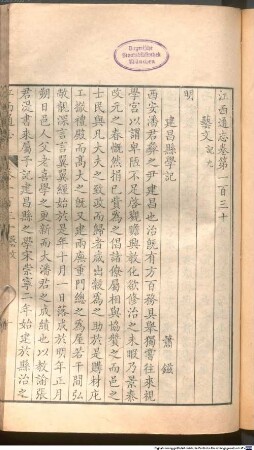 江西通志卷第一百三十
藝文 記九
明
建昌縣學記
蕭鎡
西安潘君彝之尹建昌也治既有方百務具舉獨嘗往來視
學宮以謂卑陋不足啓瞻興敎化欲修治之未暇乃景泰
改元之春慨然捐已貲為之倡諸僚屬相與協贊之而邑之
士民與凡大夫之致政而歸者咸出穀為之助於是購材庀
工撤禮殿而高大之既又建兩廡重門總之為屋若干間弘
敞靚深言言翼翼經始於是年十月一日落成於明年正月
朔日邑人父老喜學之更新而大潘君之成績也以教諭張
君湜書來屬予記建昌縣之學宋崇寧二年始建於縣治之
Bayerische
Staatsbibliothek
München